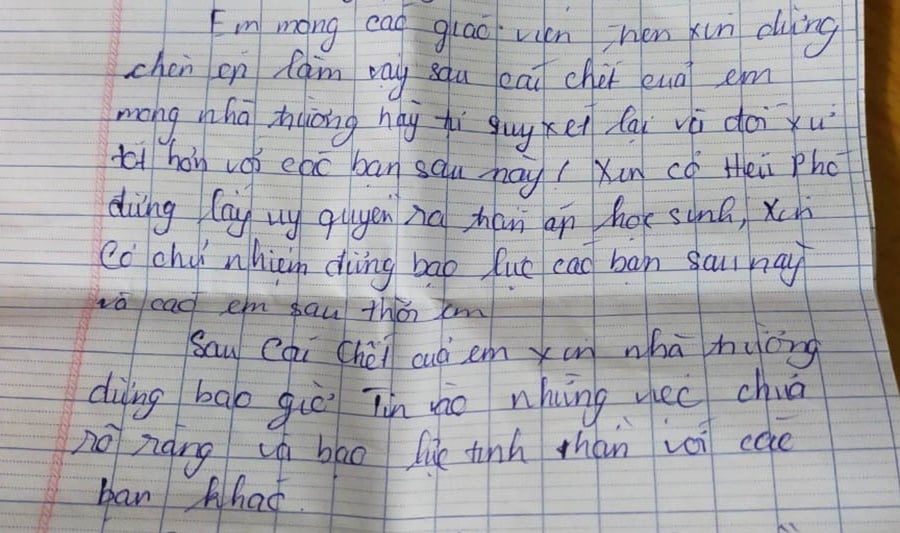 Em mong các giáo viên trên xin đừng
chèn ép lắm vậy sau cái chết của em
mong nhà trường hãy tự suy xét lại và đối xử
tốt hơn với các bạn sau này! Xin cô Hiệu Phó
đừng lấy uy quyền ra trấn áp học sinh, xin
Cô chủ nhiệm đừng bạo lực các bạn sau này
và các em sau thời em
Sau Cái Chết của em xin nhà trường
đừng bao giờ Tin vào những việc chưa
rõ ràng và bạo lực tinh thần với các
bạn khác.